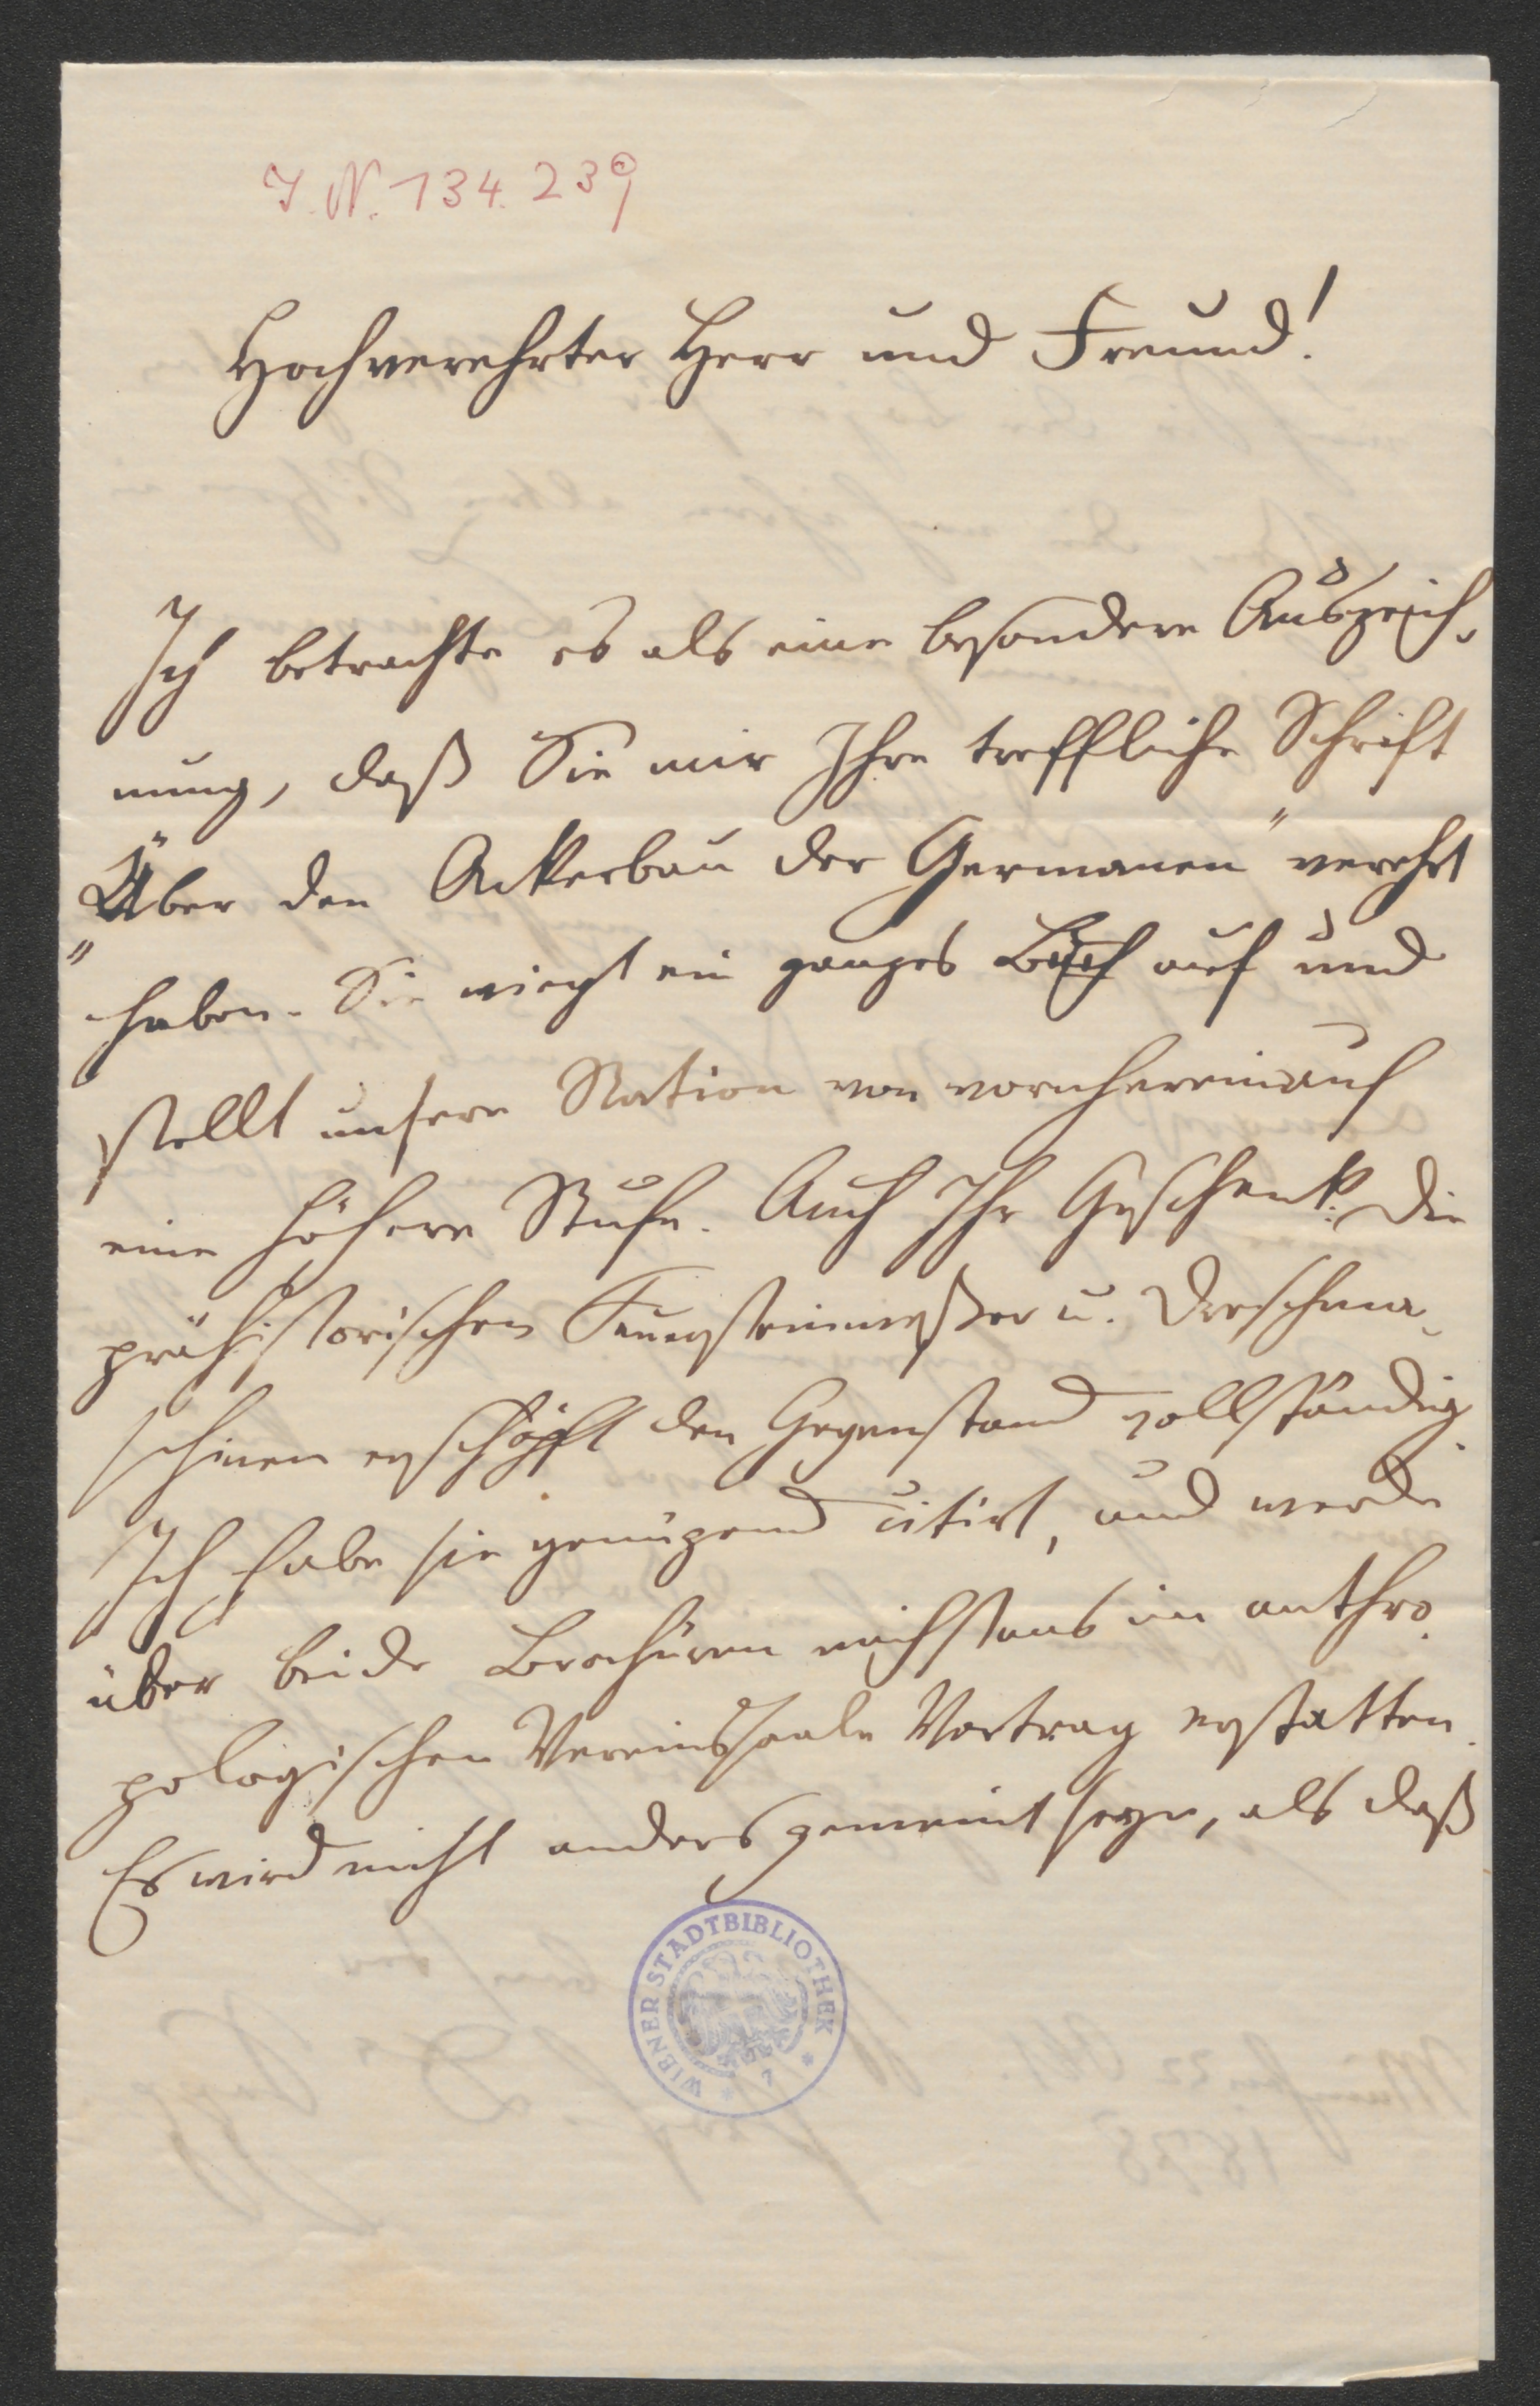 J.N. 134.239
Hochverehrter Herr und Freund!
Ich betrachte es als eine besondere Auszeich-
nung, daß Sie mir Ihre treffliche Schrift
„Über den Ackerbau der Germanen" verehrt
haben. Sie wiegt ein ganzes Buch auf und
stellt unsere Nation von vornherein auf
eine höhere Stufe. Auch Ihr Geschenk: Die
prähistorischen Feuersteinmeßer u. Dreschma-
schinen erschöpft den Gegenstand vollständig.
Ich habe sie genügend citirt, und werde
über beide Brochüren nächstens im anthro-
pologischen Vereinssaale Vortrag erstatten.
Es wird nicht anders gemeint seyn, als daß
WIENER STADTBIBLIOTHEK * 7 *